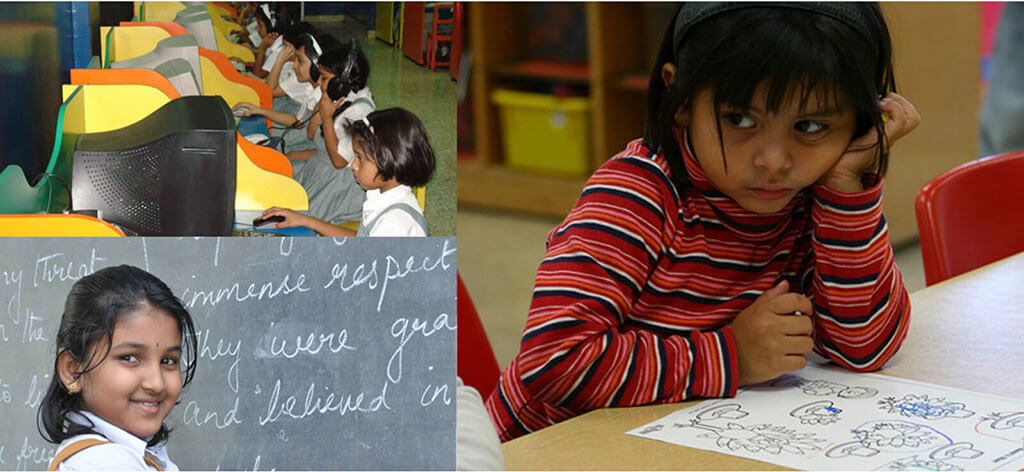 ny Threat immense respect
in the They were gra
to li and believed in
free